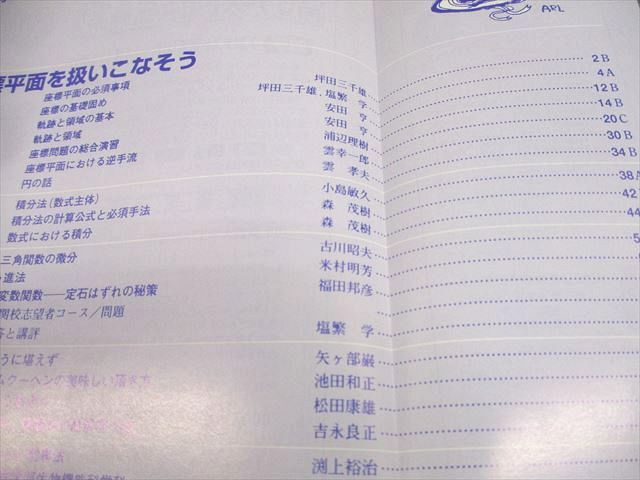 APL
標平面を扱いこなそう
座標平面の必須事項 坪田三千雄 2B
座標の基礎固め 坪田三千雄，塩繁 学 4A
軌跡と領域の基本 安田 亨 12B
軌跡と領域 安田 亨 14B
座標問題の総合演習 浦辺理樹 20C
座標平面における逆手流 雲幸一郎 30B
円の話 雲 孝夫 34B
積分法(数式主体) 小島敏久 38A
積分法の計算公式と必須手法 森 茂樹 42
数式における積分 森 茂樹 44
三角関数の微分 古川昭夫 5
進法 米村明芳
変数関数──定石はずれの秘策 福田邦彦
関校志望者コース／問題
答と講評 塩繁 学
うに堪えず 矢ヶ部巌
ムクーヘンの美味しい 池田和正
松田康雄
吉永良正
渕上裕治